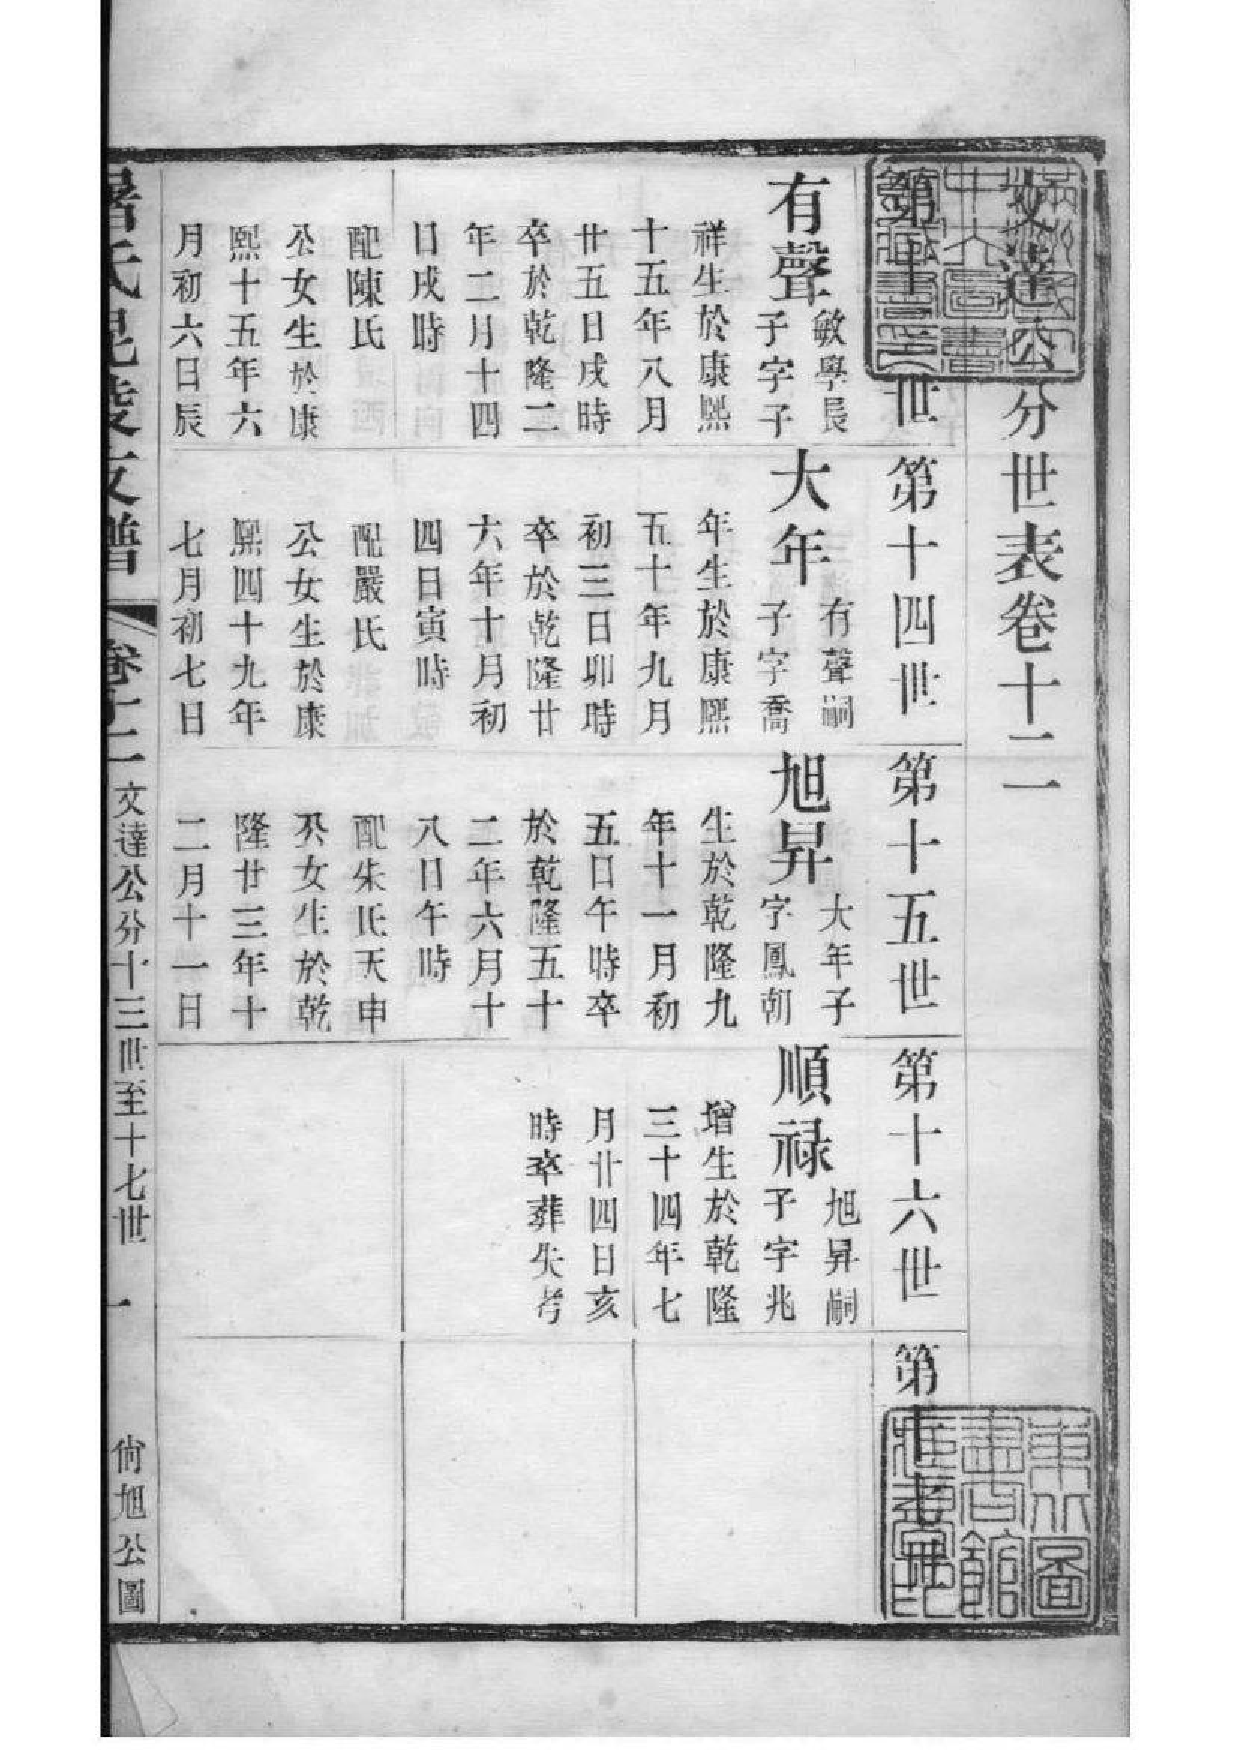 文達公分世表卷十二
第十三世
有聲
敏學長
子字子
祥生於康熙
十五年八月
廿五日戌時
卒於乾隆二
年二月十四
日戌時
配陳氏
公女生於康
熙十五年六
月初六日辰
第十四世
大年
有聲嗣
子字喬
年生於康熙
五十年九月
初三日卯時
卒於乾隆廿
六年十月初
四日寅時
配嚴氏
公女生於康
熙四十九年
七月初七日
第十五世
旭昇
大年子
字鳳朝
生於乾隆九
年十一月初
五日午時卒
於乾隆五十
二年六月十
八日午時
配朱氏天申
公女生於乾
隆廿三年十
二月十一日
第十六世
順祿
旭昇嗣
子字兆
增生於乾隆
三十四年七
月廿四日亥
時卒葬失考
第十七世
屠氏毘陵支譜
卷十二
文達公分十三世至十七世
一
尙旭公圖
東北圖書館